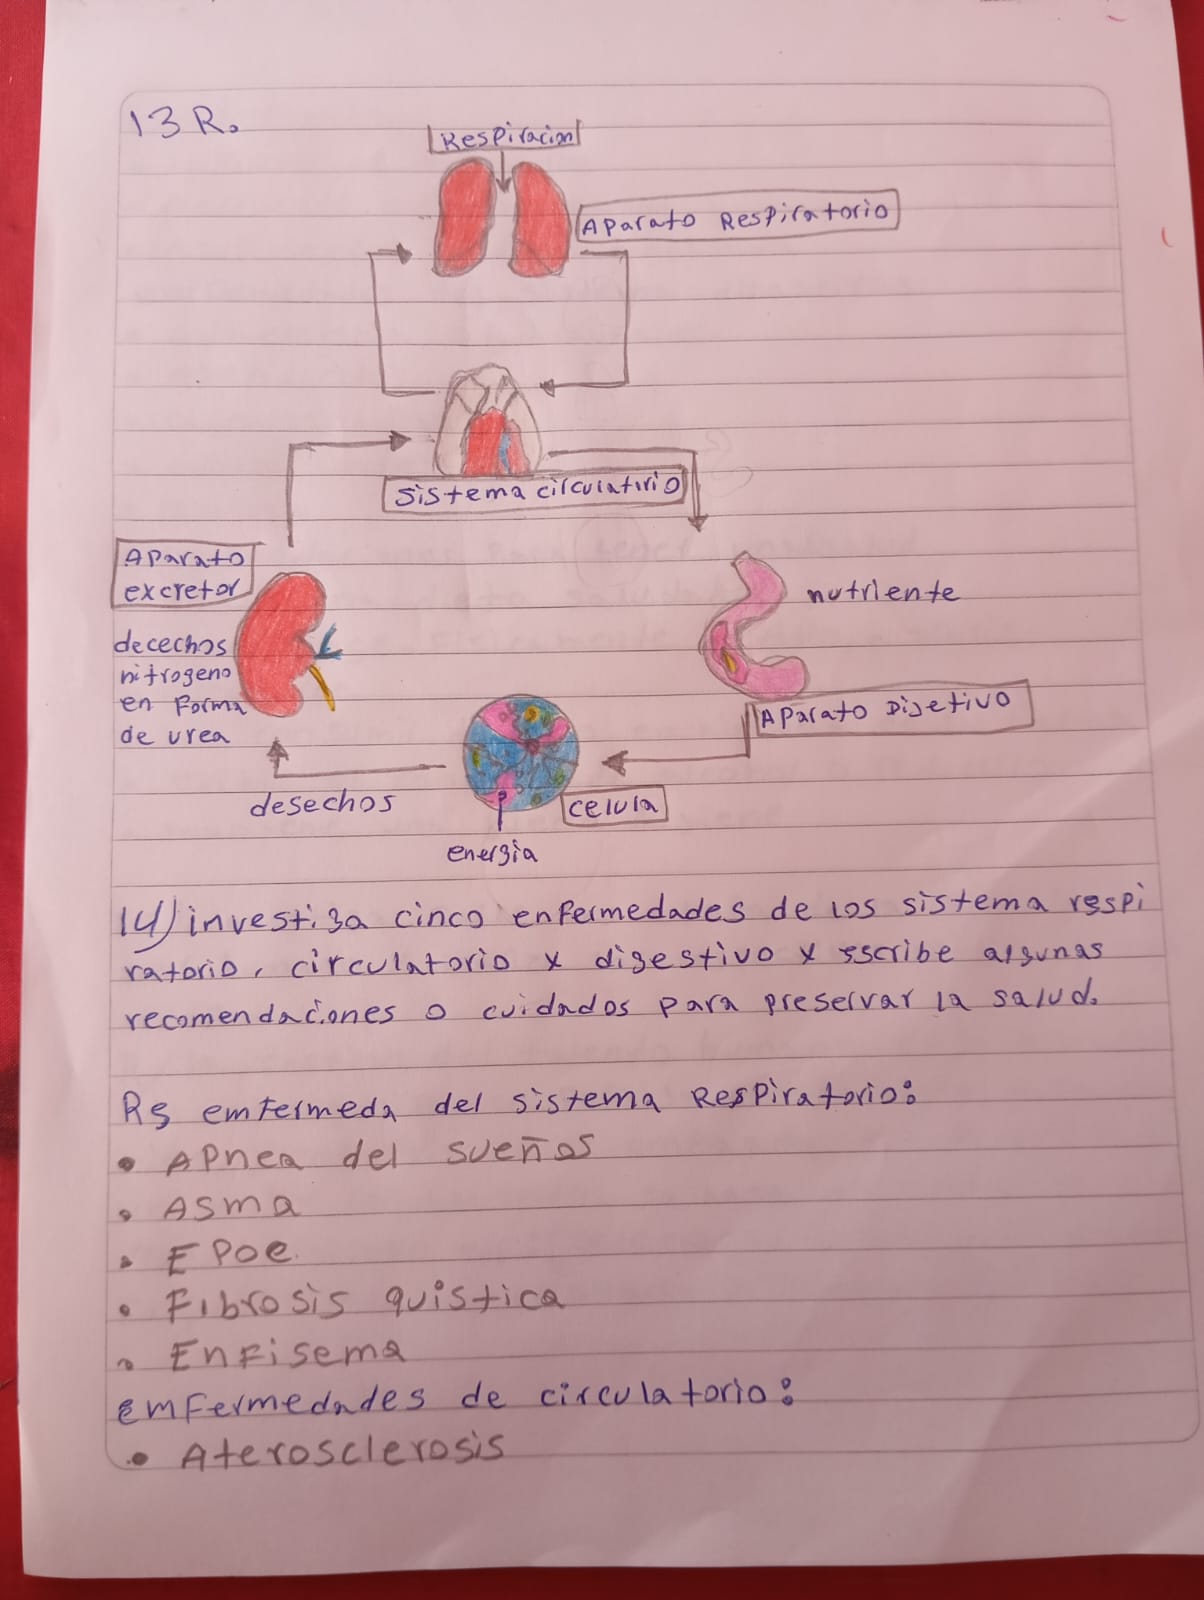 13 R.
Respiracion
Aparato Respiratorio
Sistema circulatirio
Aparato
excretor
nutriente
decechos
nitrogeno
en Forma
de urea
Aparato Dijetivo
desechos
celula
energia
14) investiga cinco enfermedades de los sistema respi
ratorio, circulatorio y digestivo y escribe algunas
recomendaciones o cuidados para preservar la salud.
R5 emfermeda del sistema Respiratorio:
• Apnea del sueños
• Asma
• EPOe.
• Fibrosis quistica
• Enfisema
emfermedades de circulatorio:
• Aterosclerosis